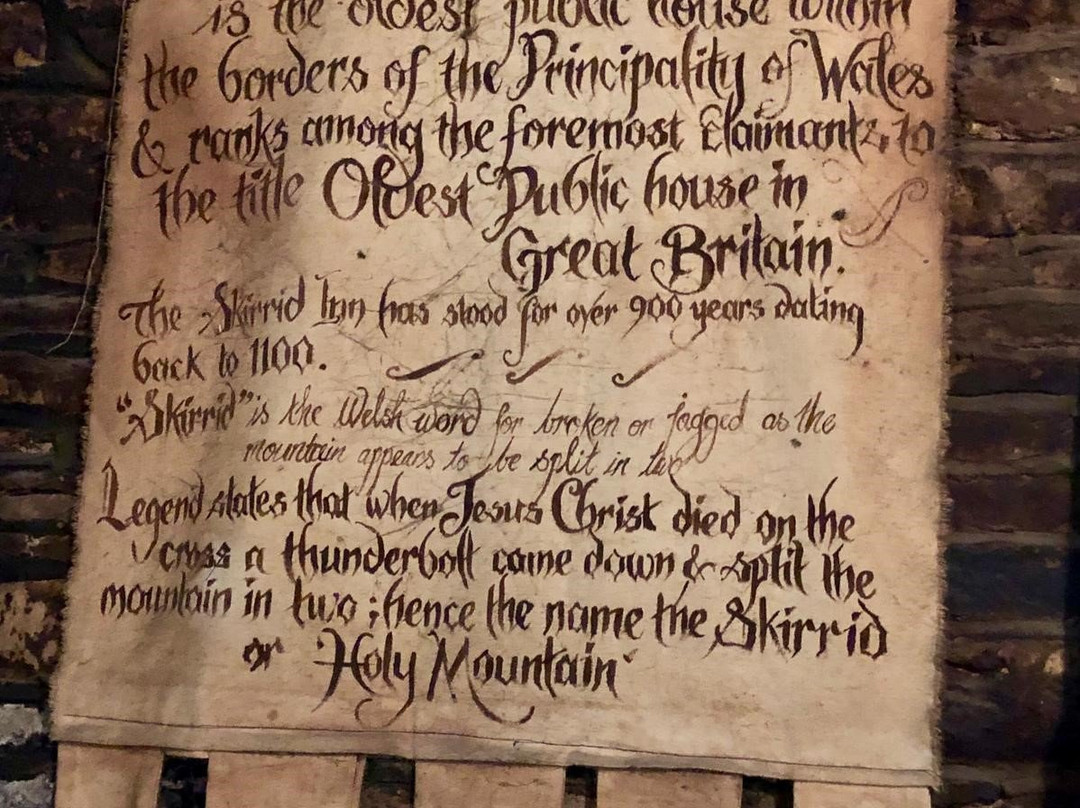 is the oldest public house within
the borders of the Principality of Wales
& ranks among the foremost Claimants, to
the title Oldest Public house in
Great Britain.
The Skirrid Inn has stood for over 900 years dating
back to 1100.
"Skirrid" is the Welsh word for broken or jagged as the
mountain appears to be split in two
Legend states that when Jesus Christ died on the
cross a thunderbolt came down & split the
mountain in two; hence the name the Skirrid
or 'Holy Mountain'